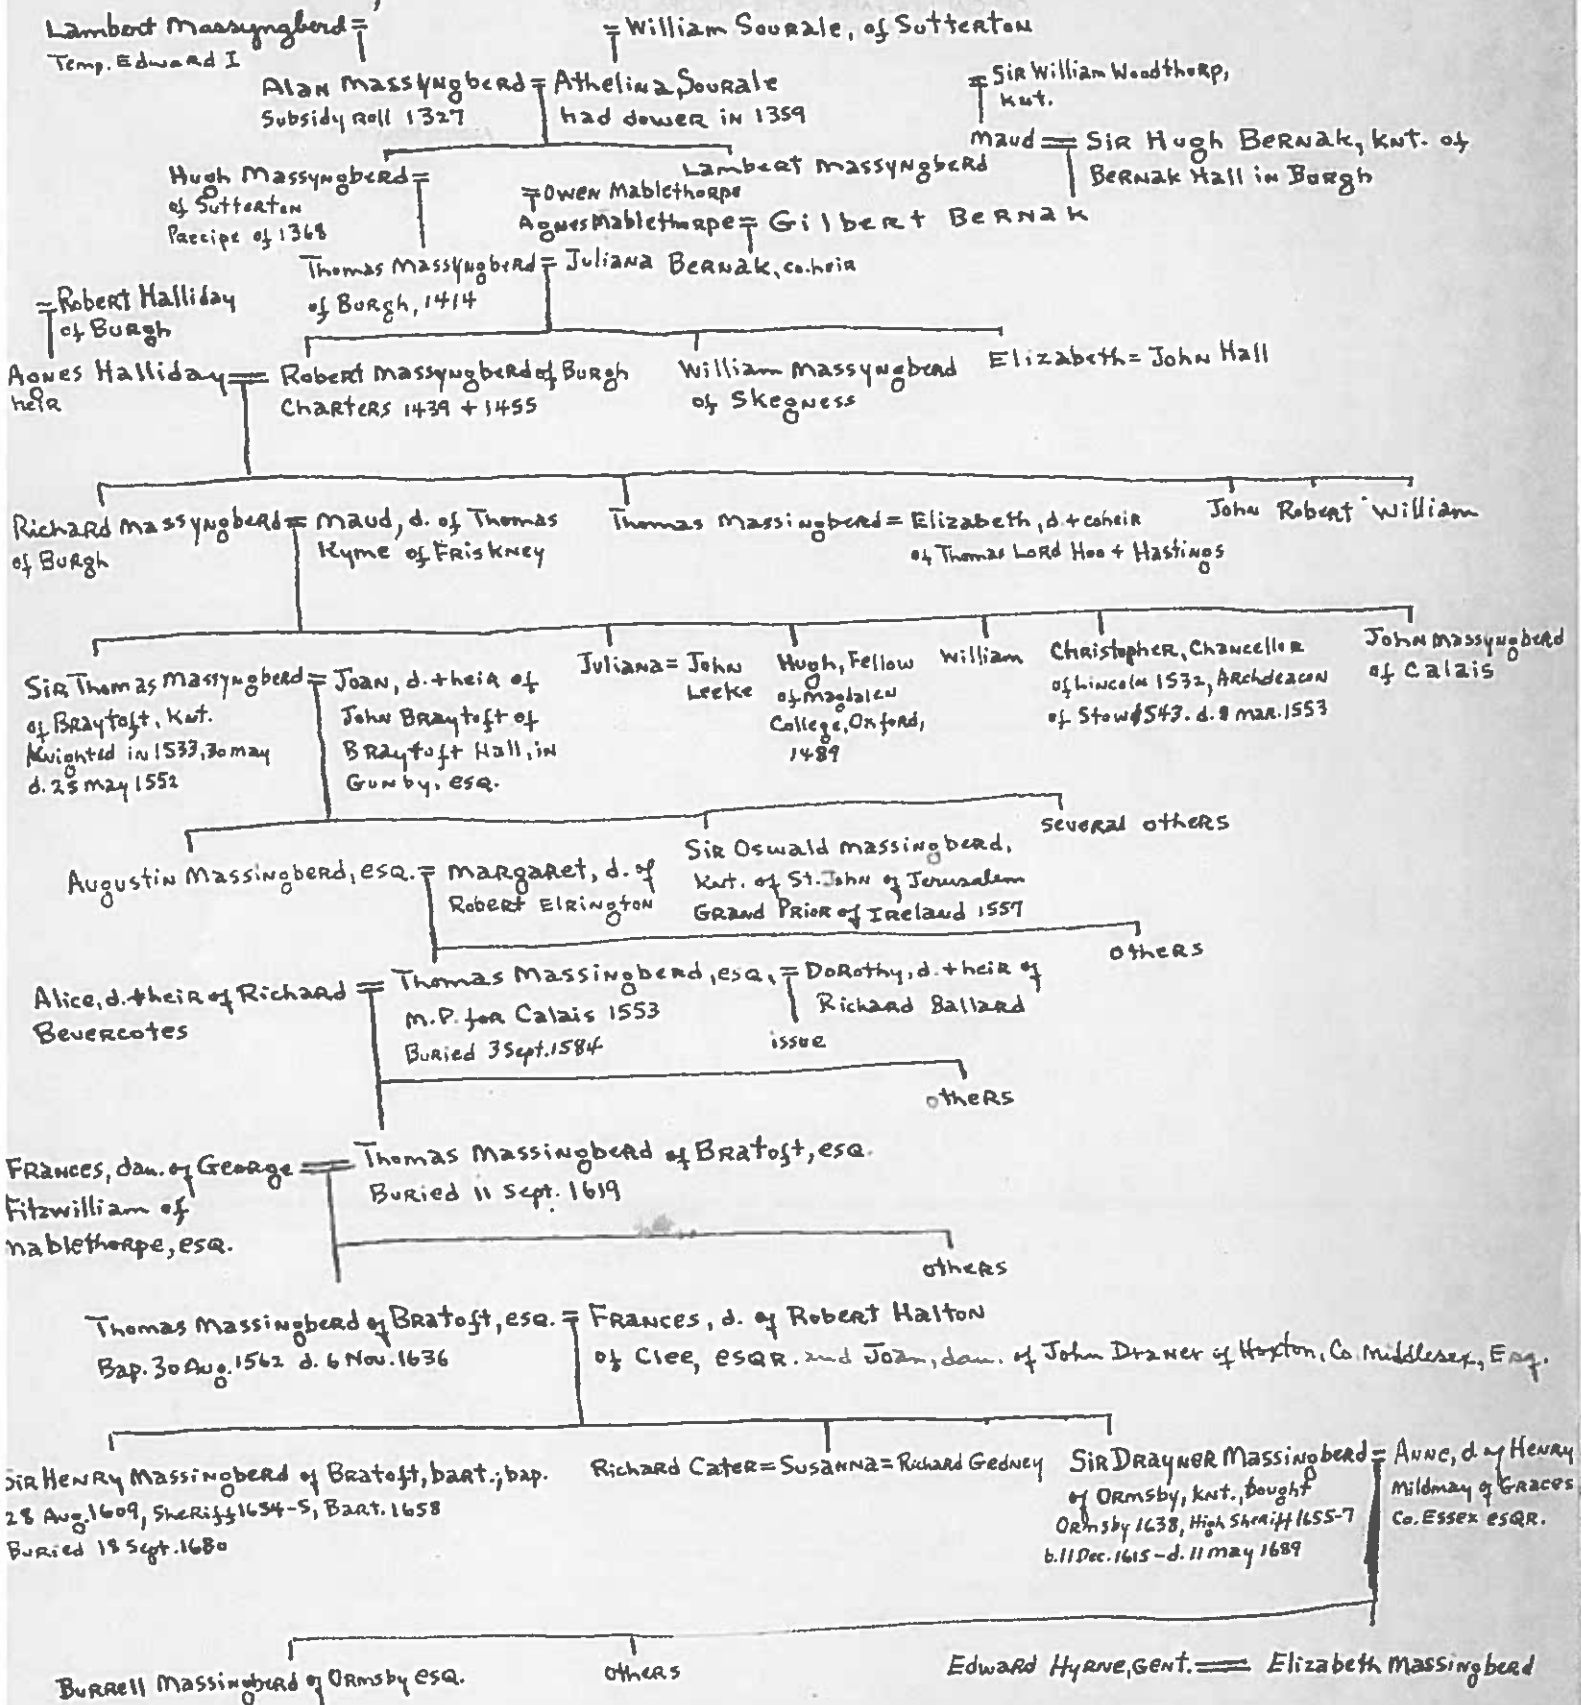 Lambert Massyngberd =
Temp. Edward I
= William Sourale, of Sutterton
Alan Massyngberd = Athelina Sourale
Subsidy Roll 1327
had dower in 1359
= Sir William Woodthorp,
Knt.
Maud = Sir Hugh Bernak, Knt. of
Bernak Hall in Burgh
Hugh Massyngberd =
of Sutterton
Precipe of 1368
Lambert Massyngberd
= Owen Mablethorpe
Agnes Mablethorpe = Gilbert Bernak
Thomas Massyngberd = Juliana Bernak, co.heir
of Burgh, 1414
= Robert Halliday
of Burgh
Agnes Halliday = Robert Massyngberd of Burgh
heir
Charters 1439 + 1455
William Massyngberd
of Skegness
Elizabeth = John Hall
Richard Massyngberd = Maud, d. of Thomas
of Burgh
Kyme of Friskney
Thomas Massingberd = Elizabeth, d. + coheir
of Thomas Lord Hoo + Hastings
John Robert William
Sir Thomas Massyngberd = Joan, d. + heir of
of Braytoft, Knt.
Knighted in 1533, 30 May
d. 25 May 1552
John Braytoft of
Braytoft Hall, in
Gunby, esq.
Juliana = John
Leeke
Hugh, Fellow
of Magdalen
College, Oxford,
1489
William
Christopher, Chancellor
of Lincoln 1532, Archdeacon
of Stow 1543. d. 8 Mar. 1553
John Massyngberd
of Calais
Augustin Massingberd, esq. = Margaret, d. of
Robert Elrington
Sir Oswald Massingberd,
Knt. of St. John of Jerusalem
Grand Prior of Ireland 1557
several others
Alice, d. + heir of Richard = Thomas Massingberd, esq., = Dorothy, d. + heir of
Bevercotes
M.P. for Calais 1553
Buried 3 Sept. 1584
Richard Ballard
issue
others
others
Frances, dau. of George = Thomas Massingberd of Bratoft, esq.
Fitzwilliam of
Mablethorpe, esq.
Buried 11 Sept. 1619
others
Thomas Massingberd of Bratoft, esq. = Frances, d. of Robert Halton
Bap. 30 Aug. 1562 d. 6 Nov. 1636
of Clee, esqr. and Joan, dau. of John Draner of Hoxton, Co. Middlesex, Esq.
Sir Henry Massingberd of Bratoft, bart.; bap.
28 Aug. 1609, Sheriff 1634-5, Bart. 1658
Buried 18 Sept. 1680
Richard Cater = Susanna = Richard Gedney
Sir Drayner Massingberd = Anne, d. of Henry
of Ormsby, Knt., bought
Ormsby 1638, High Sheriff 1655-7
b. 11 Dec. 1615 - d. 11 May 1689
Mildmay of Graces
Co. Essex esqr.
Burrell Massingberd of Ormsby esq.
others
Edward Hyrne, Gent. = Elizabeth Massingberd